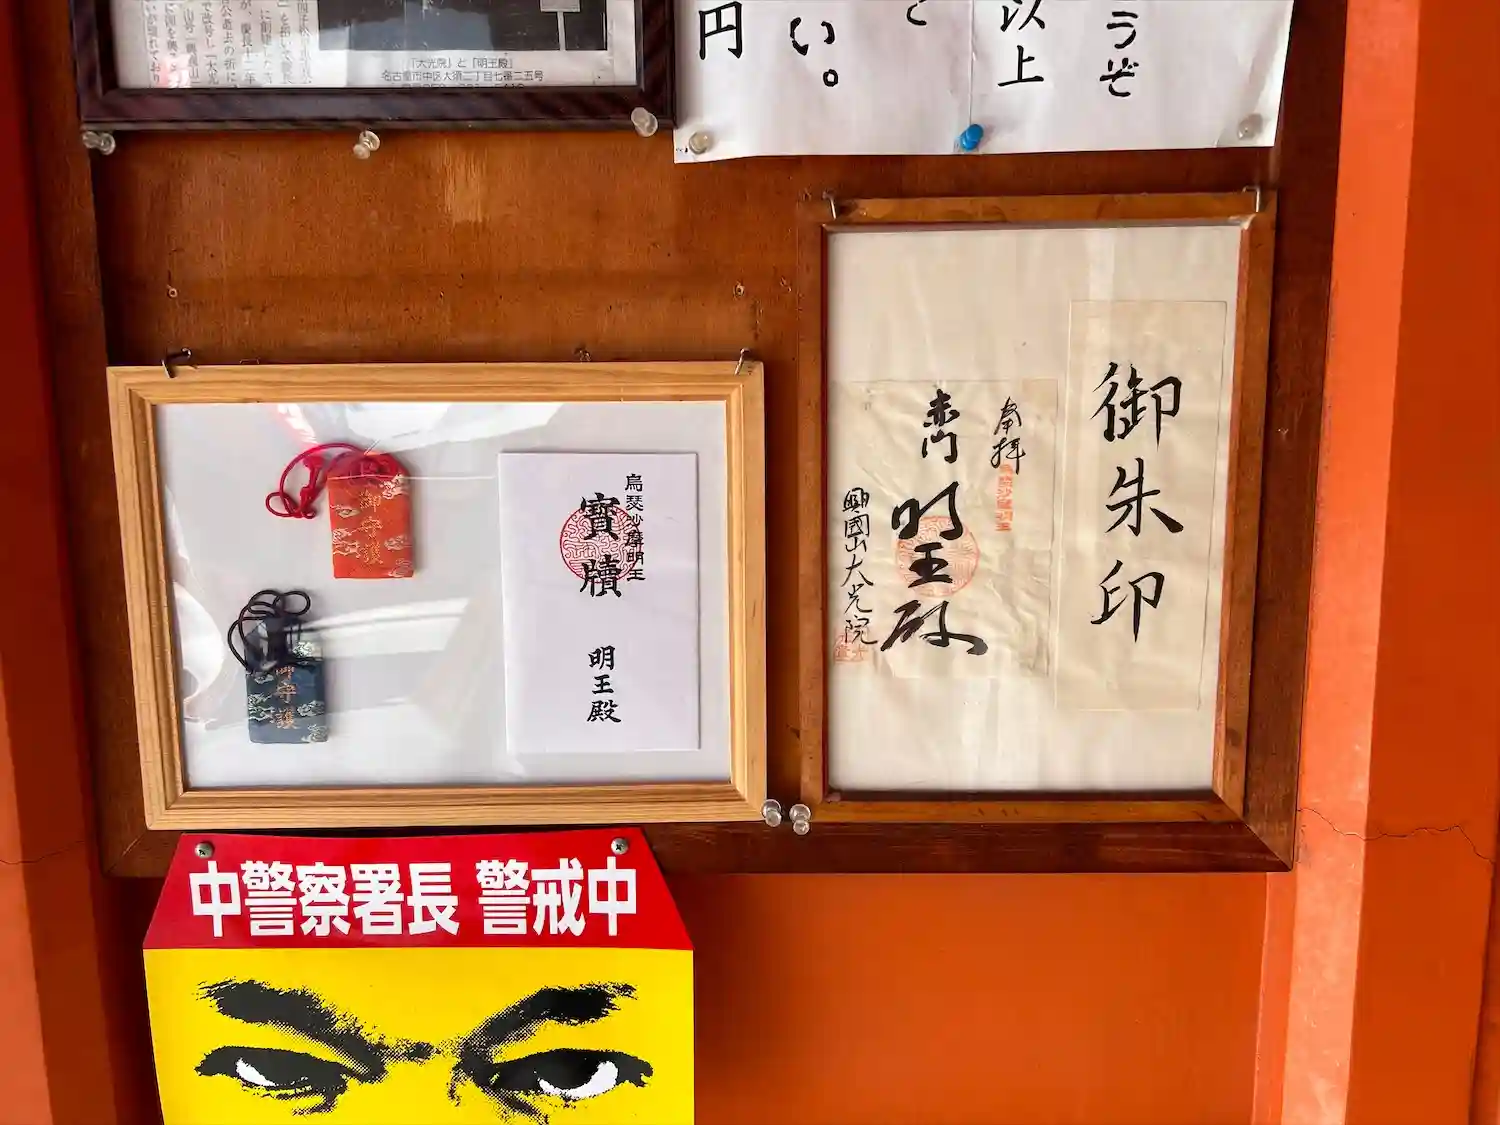 「大光院」と「明王殿」
名古屋市中区大須二丁目七番二五号
うぞ
以上
と
い。
円
御朱印
奉拝
烏瑟沙摩明王
赤門
明王殿
興國山大光院
烏瑟沙摩明王
寶牘
明王殿
御守護
御守護
中警察署長 警戒中